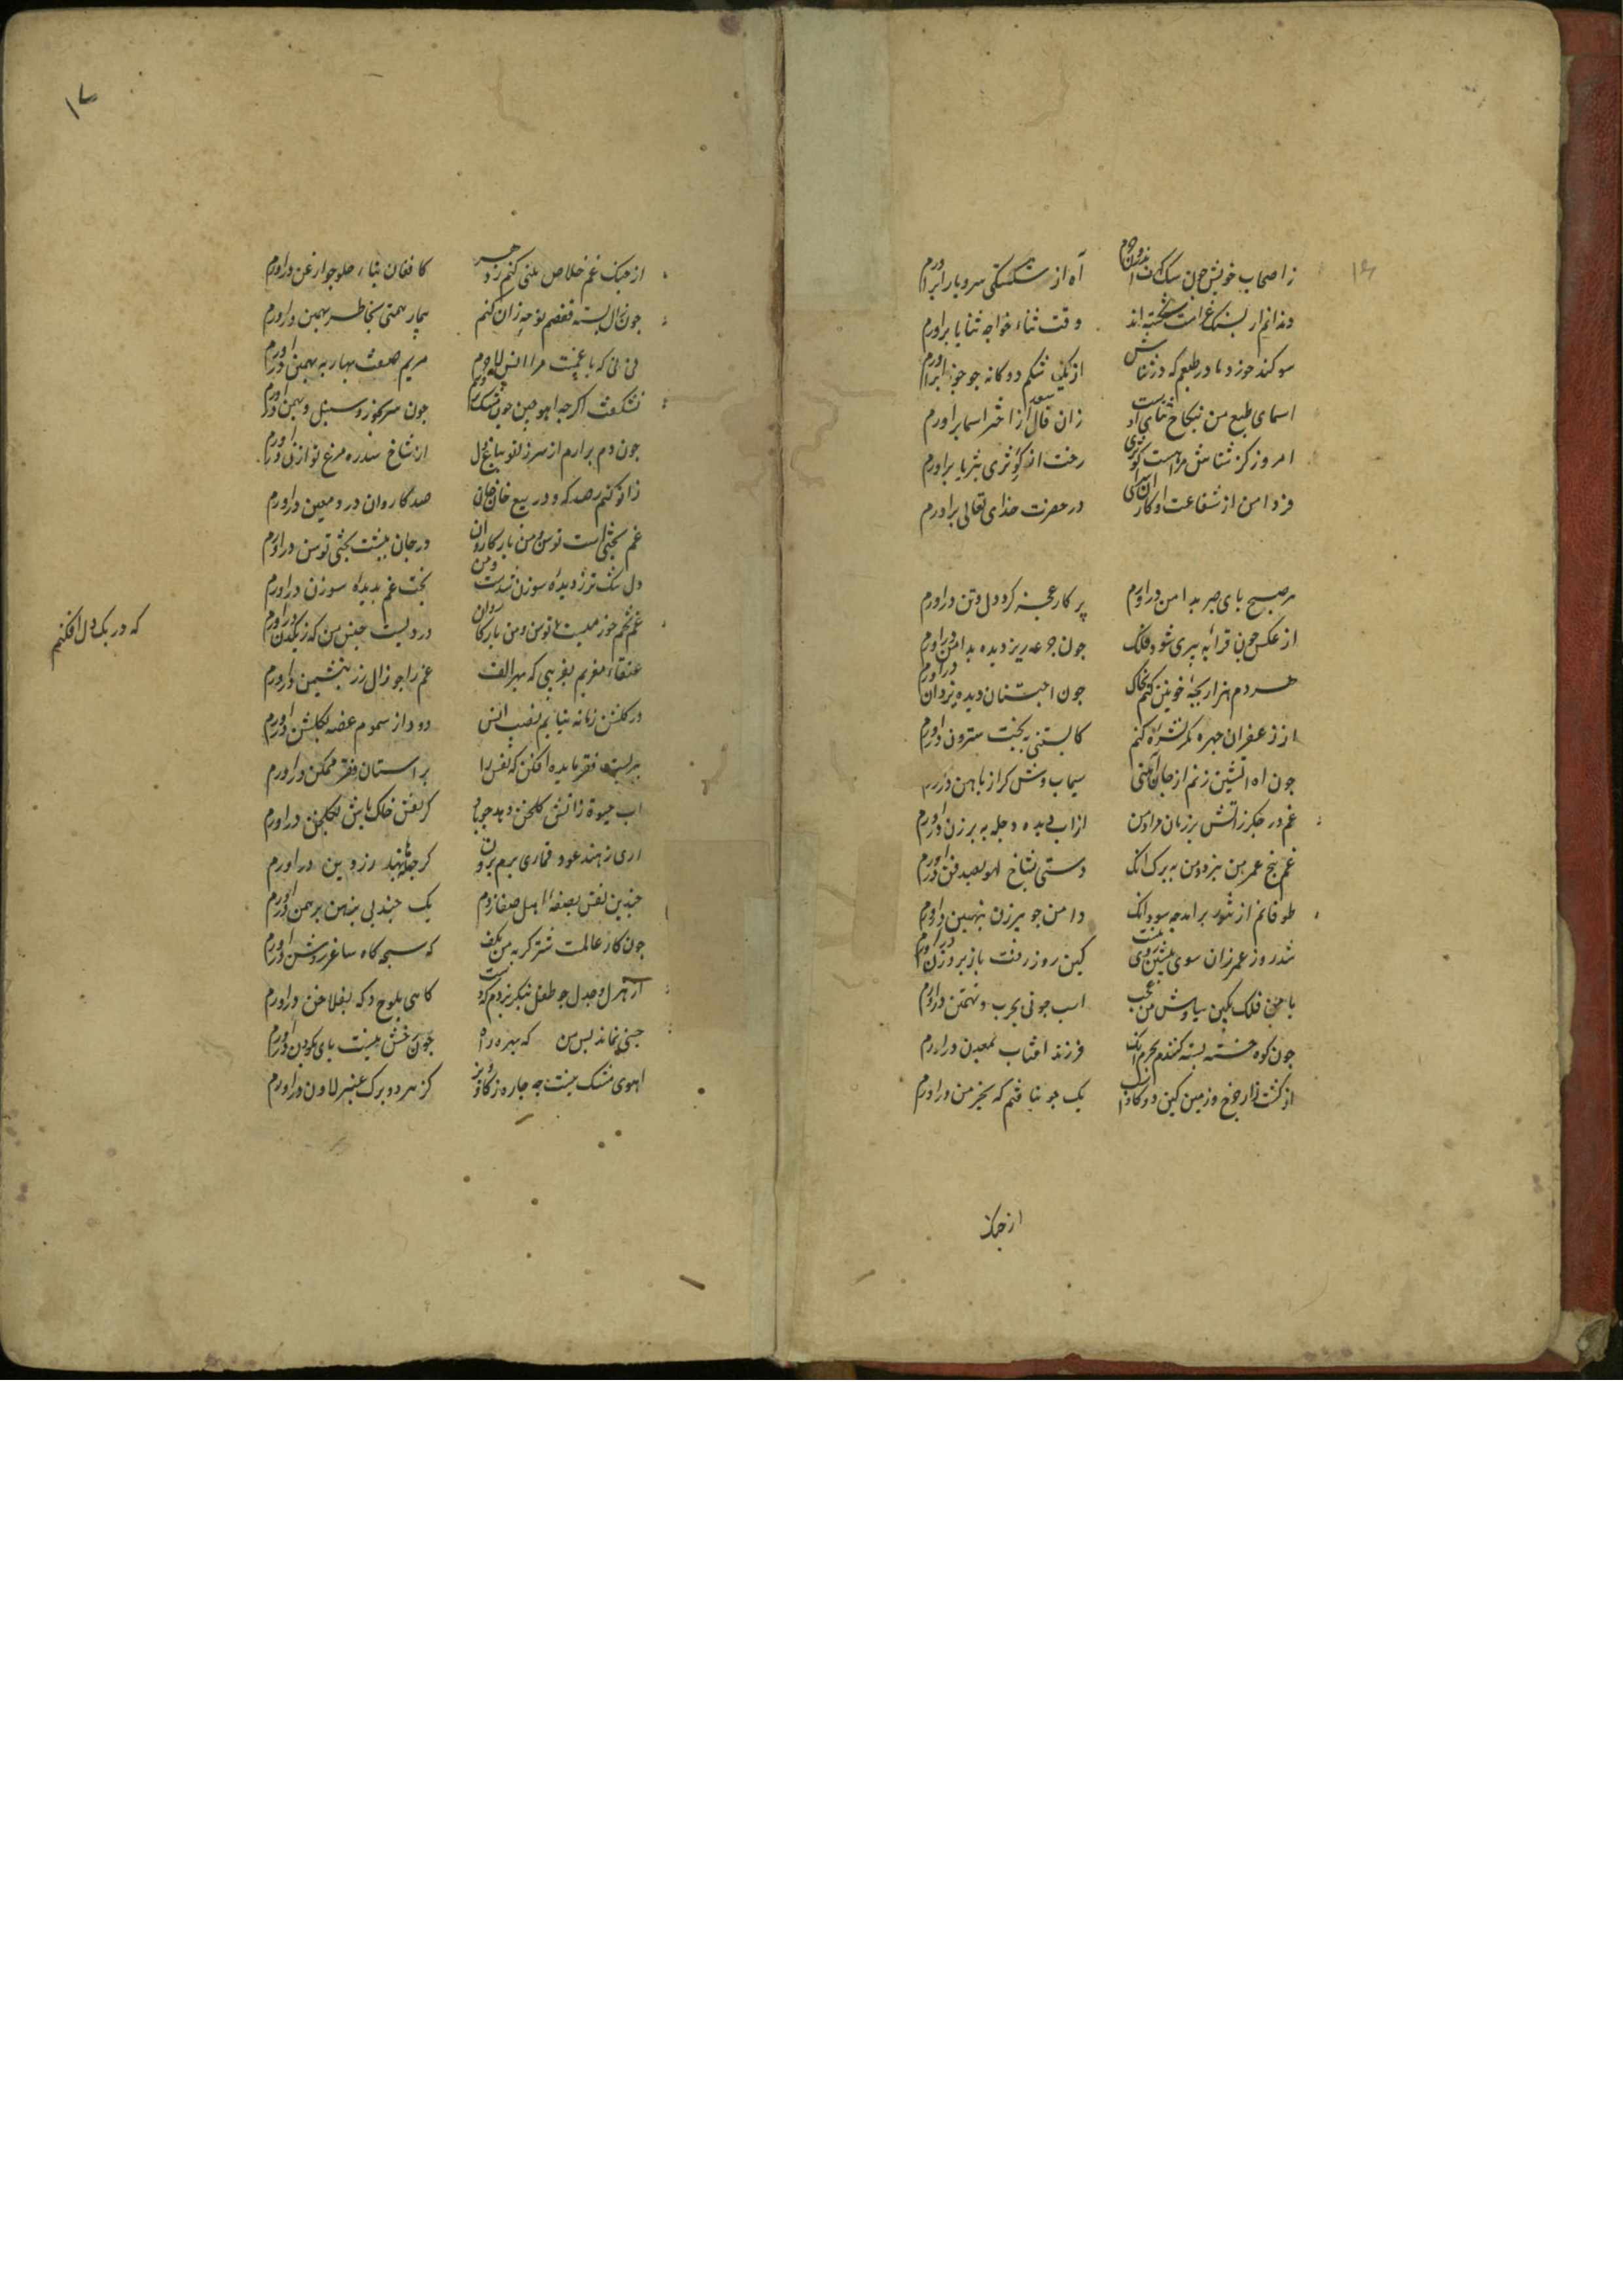 ز اصحاب خویش چون سگ کهف اندرون حرم آه از شکستگی سر و پا برآورم
دندانم ار بسنگ غرامت شکسته‌اند وقت ثناء خواجه ثنایا برآورم
سوگند خورد مادر طبعم که در ثناش از یک شکم دوگانه چو جوزا برآورم
اسمای طبع من بنکاح ثنای اوست زان فال سعد از اختر اسما برآورم
امروز کز ثناش مرا هست کوثری رخت از گوثری بثریا برآورم
فردا من از شفاعت او کار آن سرای در حضرت خدای تعالی برآورم
هر صبح پای صبر بدامن درآورم پرکار عجز گرد دل و تن درآورم
از عکس خون قرابه پیری شود فلک چون جرعه ریز دیده بدامن درآورم
هر دم هزار بچهٔ خونین کنم بخاک چون آبستنان دیده بزادن درآورم
از زعفران چهره مگر نشره کنم کابستنی به بخت سترون درآورم
چون آه آتشین زنم از جان آهنی سیماب وش گداز بآهن درآورم
غم در جگر زد آتش برزین مرا و من از آب دیده دجله به برزن درآورم
غم بیخ عمر من ببرد و من به برگ آنک دستی بشاخ لهو بصد فن درآورم
طوفانم از تنور برآمد چه سود از آنک دامن چو پیرزن بنهنبن درآورم
شد روز عمر زان سوی پیشین و روی نیست کین روز رفته باز بروزن درآورم
با من فلک بکین سیاوش و من ز عجب اسب چوبی بحرب تهمتن درآورم
چون کوه خسته سینه کنندم بجرم آنک فرزند آفتاب بمعدن درآورم
از کشت زار چرخ و زمین کین دو گاو راست یک جو نیافتم که بخرمن درآورم
از جنگ
۱۷
از چنگ غم خلاص تمنی کنم ز دهر کافغان بنای و حلق چو ارغن درآورم
چون زال بسته قفصم نوحه زان کنم تا رحمتی بخاطر بهمن درآورم
نی نی که با غمست مرا انس لاجرم مریم صفت بهار به بهمن درآورم
نشگفت اگر چو آهو چین مشک بردهم چون سر بخورد سنبل و بهمن درآورم
چون دم برآرم از سر زانو بباغ دل از شاخ سدره مرغ نوازن درآورم
زانو کنم رصدگه و در بیع خان جان صد کاروان درد معین درآورم
غم بختی است توسن و من یار کاروان در جان به پشت بختی توسن درآورم
دل تنگ‌تر ز دیدهٔ سوزن شدست و من بختی غم بدیدهٔ سوزن درآورم
غم تخم خرمیست که در یک دل افکنم دردیست جنس می که به یک دن درآورم
عنقاء مغربم بغریبی که بهر الف غم را چو زال زر بنشیمن درآورم
در گلشن زمانه نیابم نسیم انس دود از سموم غصه بگلشن درآورم
بر آستان فقر ممکن درآورم
آب حیوة از آتش گلخن دهد چو باد گر نقش خاک پاش بگلخن درآورم
آری ز هند عود قماری برم برون گر حملها بهند ز روین درآورم
چندین نفس بصفهٔ اهل صفا زدم یک چند پی بدیر برهمن درآورم
چون کار عالمست شترگربه من بکف گه سبحه گاه ساغر روشن درآورم
از هزل و جد چو طفل بنگذیردم که دست گاهی بلوح و گه بفلاخن درآورم
آهوی مشک نیست چه چاره ز گاو و بز کز هر دو برگ عنبر و لادن درآورم
که در یک دل افکنم